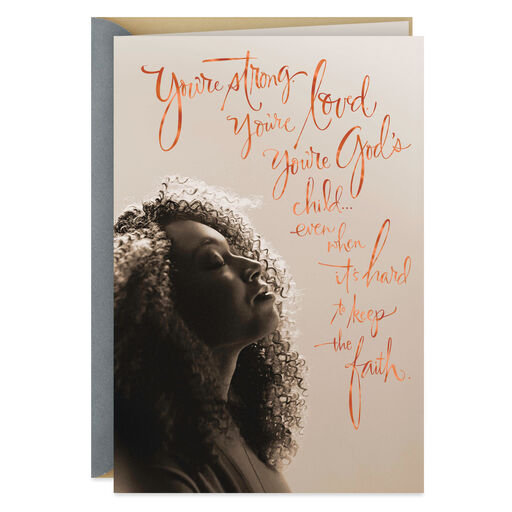 You're strong.
You're loved.
You're God's
child...
even
when
it's hard
to keep
the
faith.